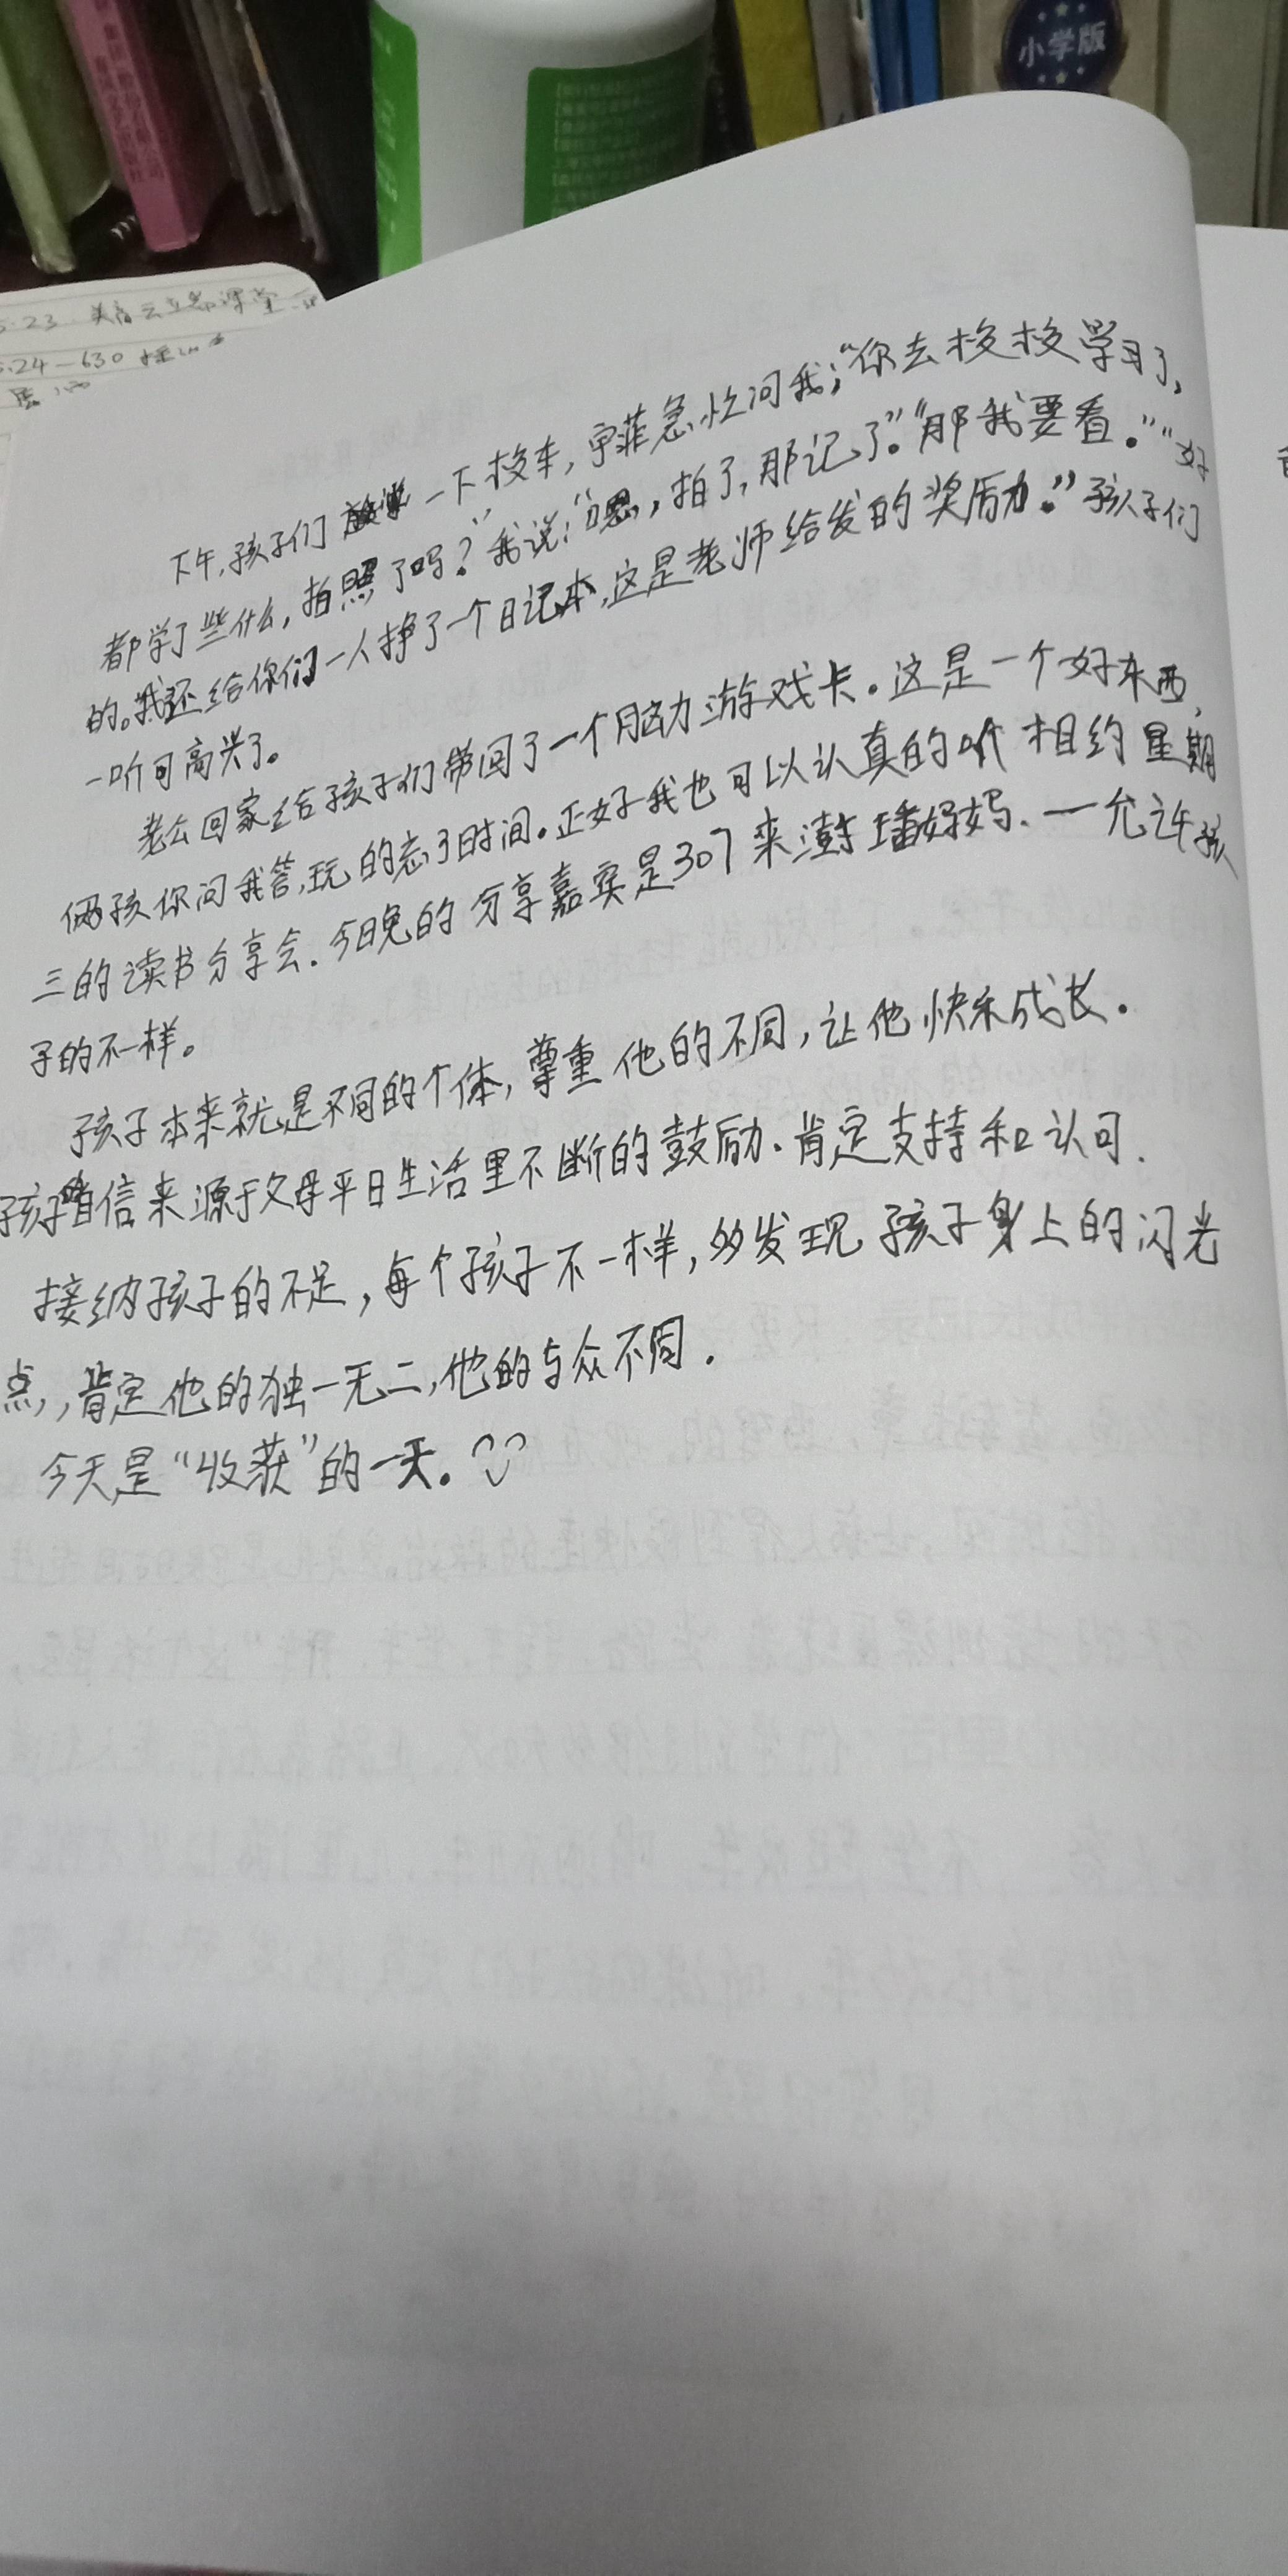 小学版
5.23
5.24—630
下午,孩子们一下校车,宇菲急忙问我:“你去校校学习了,
都学了些什么,拍照了吗?”我说:“嗯,拍了,那记了。”“那我要看。”“好
的。我还给你们一人挣了一个日记本,这是老师给发的奖励。”孩子们
一听可高兴了。
老公回家给孩子们带回了一个脑力游戏卡。这是一个好东西,
俩孩你问我答,玩的忘了时间。正好我也可以认真的听相约星期
三的读书分享会.今日晚的分享嘉宾是307来澍璠妈妈.一允许孩
子的不一样。
孩子本来就是不同的个体,尊重他的不同,让他快乐成长.
孩子自信来源于父母平日生活里不断的鼓励.肯定支持和认可.
接纳孩子的不足,每个孩子不一样,多发现孩子身上的闪光
点,,肯定他的独一无二,他的与众不同.
今天是“收获”的一天.